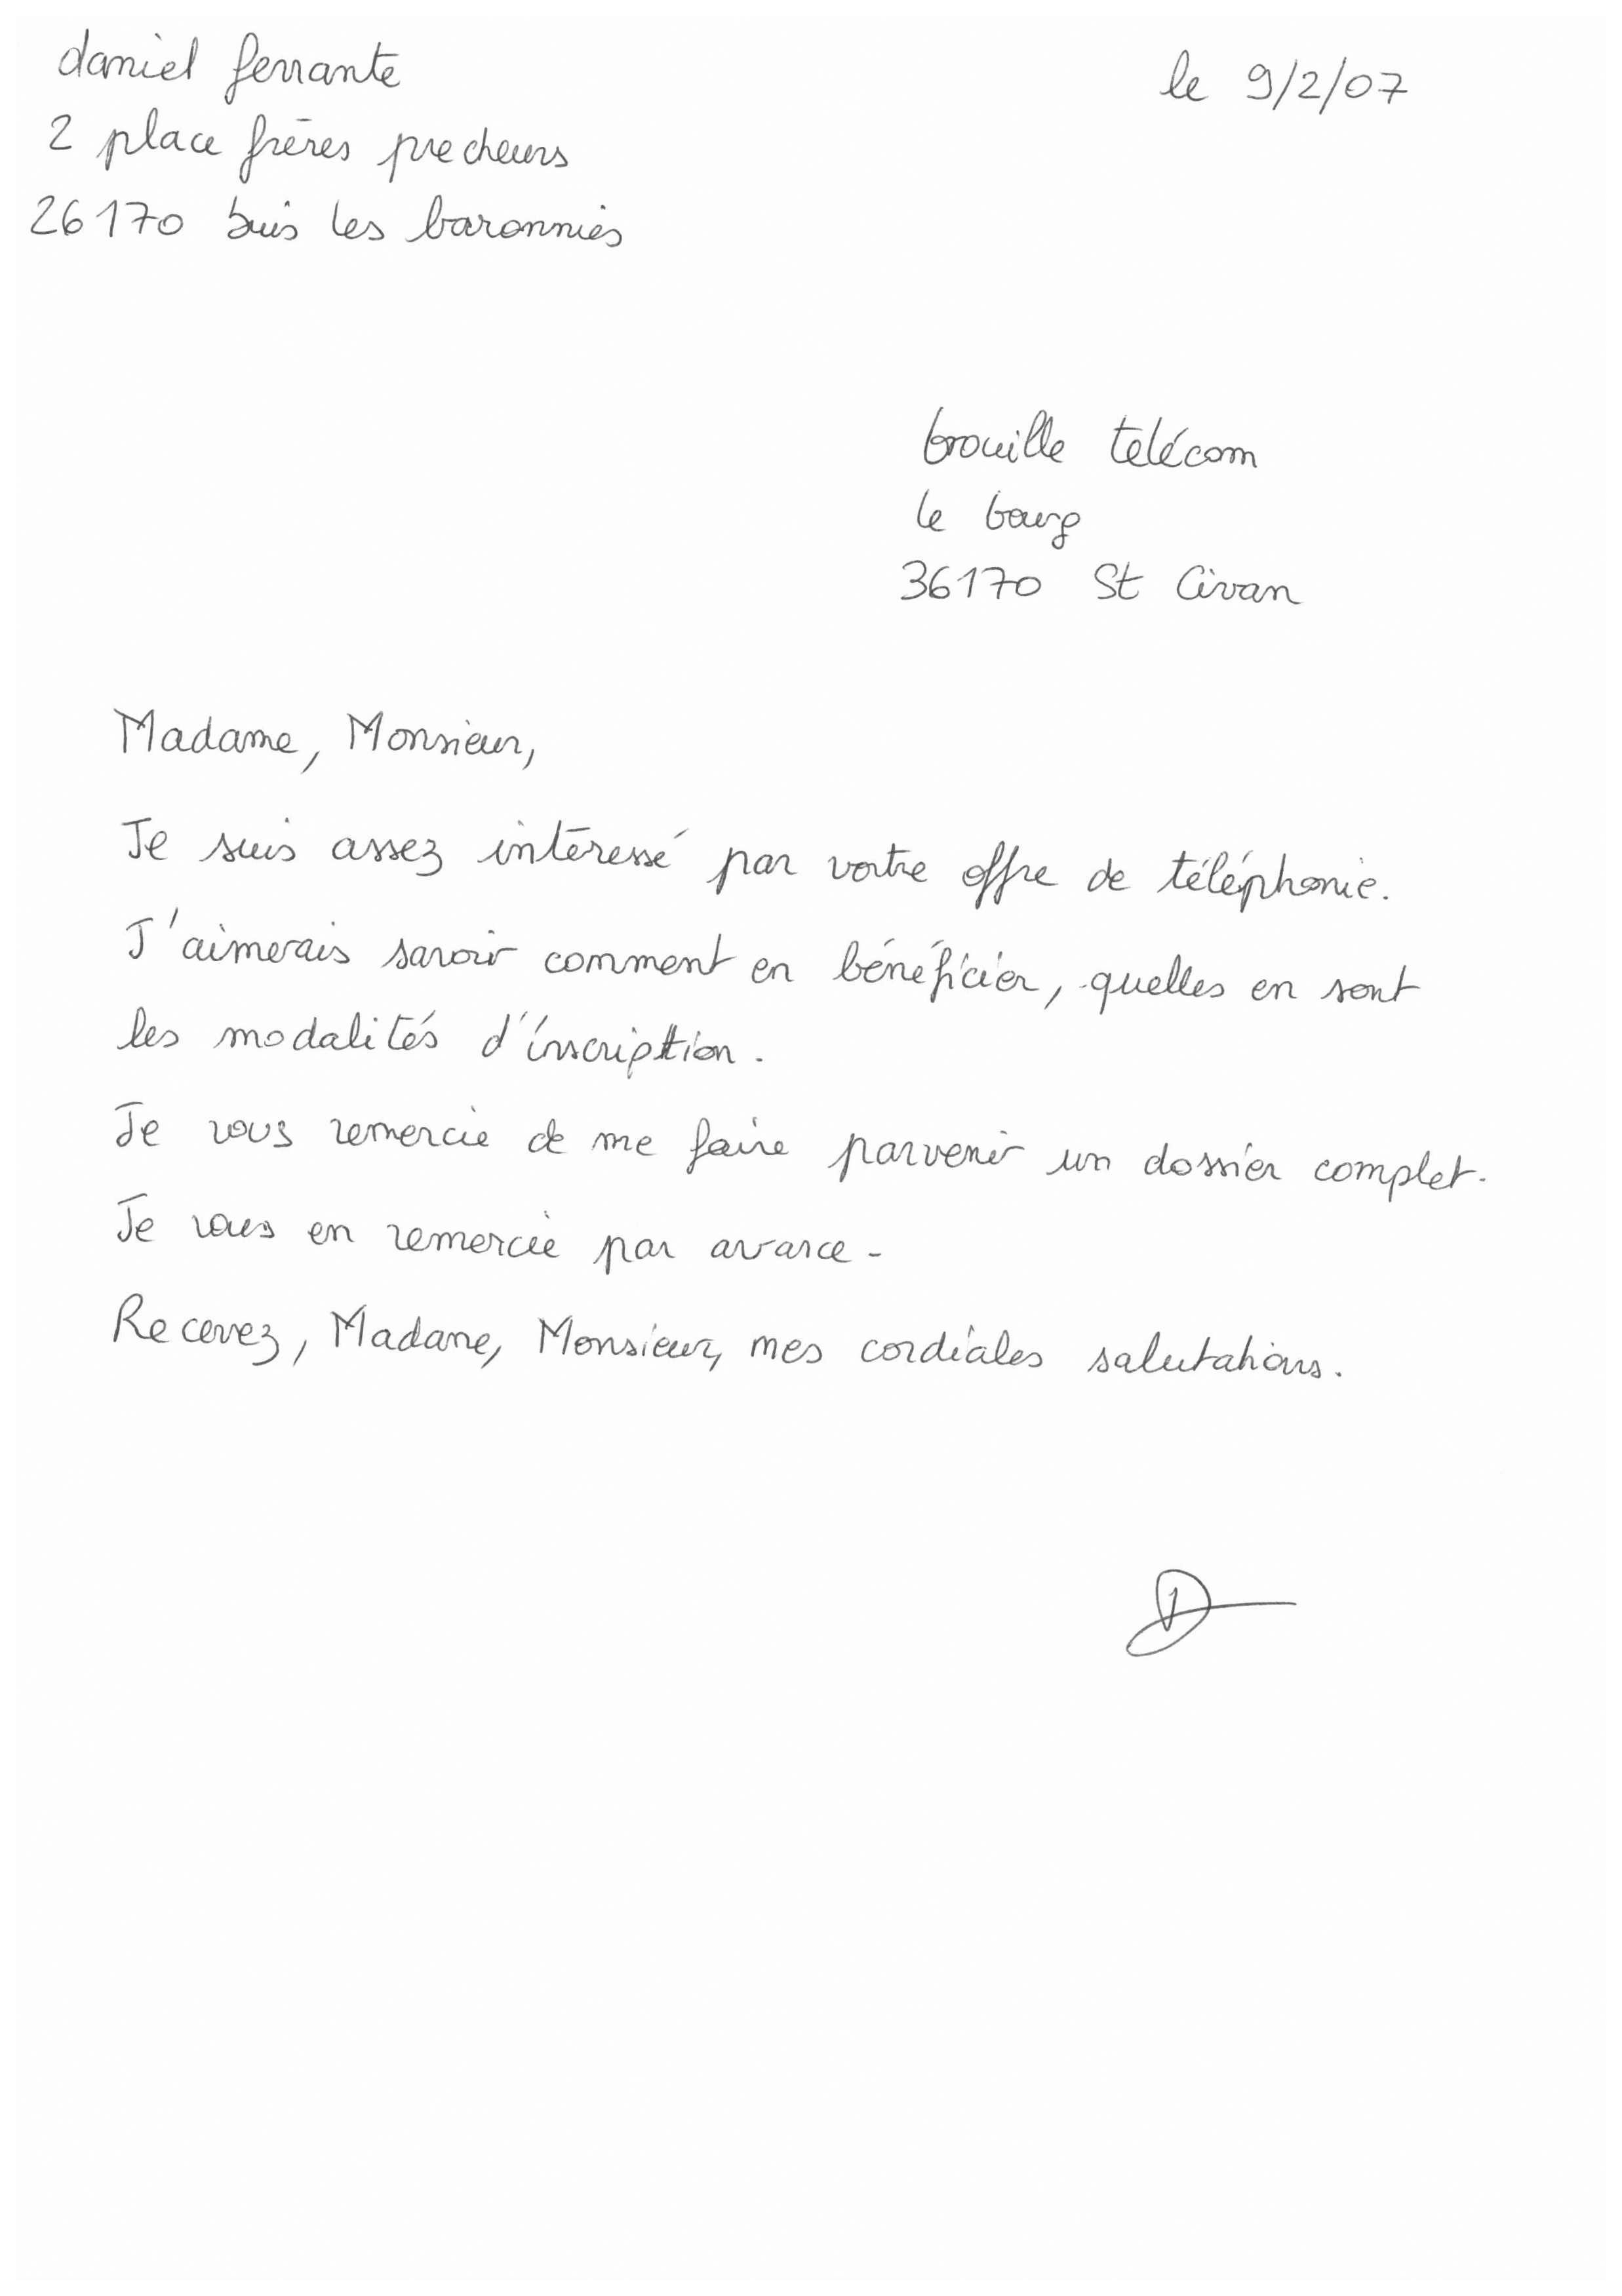 daniel ferrante
le 9/2/07
2 place frères precheurs
26170 buis les baronnies
brouille telécom
le bourg
36170 St Civran
Madame, Monsieur,
Je suis assez intéressé par vortre offre de téléphonie.
J'aimerais savoir comment en bénéficier, quelles en sont
les modalités d'inscription.
Je vous remercie de me faire parvenir un dossier complet.
Je vous en remercie par avance.
Recevez, Madame, Monsieur, mes cordiales salutations.